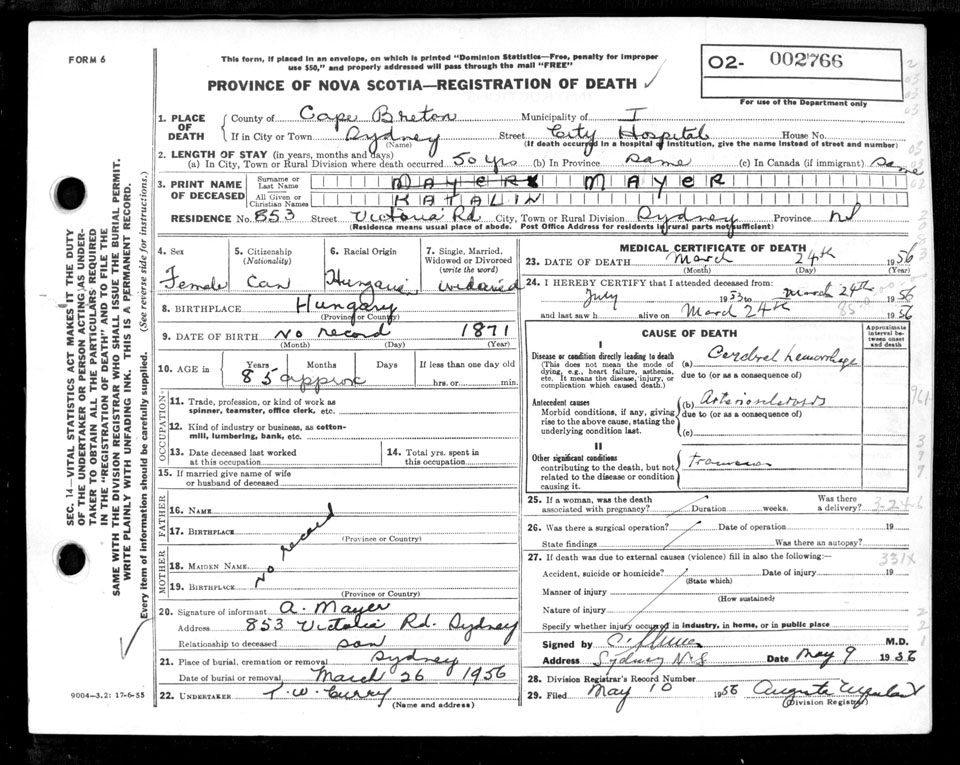 FORM 6
This form, if placed in an envelope, on which is printed "Dominion Statistics—Free, penalty for improper
use $50," and properly addressed will pass through the mail "FREE"
PROVINCE OF NOVA SCOTIA—REGISTRATION OF DEATH
02- 002766
For use of the Department only
1. PLACE OF DEATH
County of Cape Breton Municipality of I
If in City or Town Sydney Street City Hospital House No.
(Name) (If death occurred in a hospital or institution, give name instead of street and number)
2. LENGTH OF STAY (in years, months and days)
(a) In City, Town or Rural Division where death occurred 50 yrs (b) In Province same (c) In Canada (if immigrant) same
3. PRINT NAME OF DECEASED
Surname or Last Name MAYER MAYER
All Given or Christian Names KATALIN
RESIDENCE No. 853 Street Victoria Rd City, Town or Rural Division Sydney Province NS
(Residence means usual place of abode. Post Office Address for residents in rural parts not sufficient)
4. Sex Female
5. Citizenship (Nationality) Can
6. Racial Origin
7. Single, Married, Widowed or Divorced (write the word) widowed
8. BIRTHPLACE Hungary
(Province or Country)
9. DATE OF BIRTH No record 1871
(Month) (Day) (Year)
10. AGE in Years Months Days If less than one day old
85 approx hrs. or min.
OCCUPATION
11. Trade, profession, or kind of work as
spinner, teamster, office clerk, etc.
12. Kind of industry or business, as cotton-
mill, lumbering, bank, etc.
13. Date deceased last worked
at this occupation
14. Total yrs. spent in
this occupation
15. If married give name of wife
or husband of deceased
FATHER
16. NAME
17. BIRTHPLACE
(Province or Country)
No record
MOTHER
18. MAIDEN NAME
19. BIRTHPLACE
(Province or Country)
20. Signature of informant A. Mayer
Address 853 Victoria Rd. Sydney
Relationship to deceased son
21. Place of burial, cremation or removal Sydney
Date of burial or removal March 26 1956
22. UNDERTAKER T. W. Curry
(Name and address)
9004-3.2: 17-6-55
MEDICAL CERTIFICATE OF DEATH
23. DATE OF DEATH March 24th 1956
(Month) (Day) (Year)
24. I HEREBY CERTIFY that I attended deceased from:
July 1953 to March 24th 1956
and last saw h alive on March 24th 1956
CAUSE OF DEATH
Approximate interval between onset and death
I
Disease or condition directly leading to death
(This does not mean the mode of
dying, e.g., heart failure, asthenia,
etc. It means the disease, injury, or
complication which caused death.)
(a) Cerebral hemorrhage
due to (or as a consequence of)
Antecedent causes
Morbid conditions, if any, giving
rise to the above cause, stating the
underlying condition last.
(b)
due to (or as a consequence of)
(c)
II
Other significant conditions
contributing to the death, but not
related to the disease or condition
causing it.
25. If a woman, was the death
associated with pregnancy? Duration weeks. Was there a delivery?
3-24-6
26. Was there a surgical operation? Date of operation 19
State findings Was there an autopsy?
27. If death was due to external causes (violence) fill in also the following:—
331X
Accident, suicide or homicide? Date of injury 19
(State which)
Manner of injury
(How sustained)
Nature of injury
Specify whether injury occured in industry, in home, or in public place
Signed by M.D.
Address Sydney N.S Date May 9 1956
28. Division Registrar's Record Number
29. Filed May 10 1956
(Division Registrar)
SEC. 14—VITAL STATISTICS ACT MAKES IT THE DUTY
OF THE UNDERTAKER OR PERSON ACTING AS UNDER-
TAKER TO OBTAIN ALL THE PARTICULARS REQUIRED
IN THE "REGISTRATION OF DEATH" AND TO FILE THE
SAME WITH THE DIVISION REGISTRAR WHO SHALL ISSUE THE BURIAL PERMIT.
WRITE PLAINLY WITH UNFADING INK. THIS IS A PERMANENT RECORD.
Every item of information should be carefully supplied. (See reverse side for instructions.)